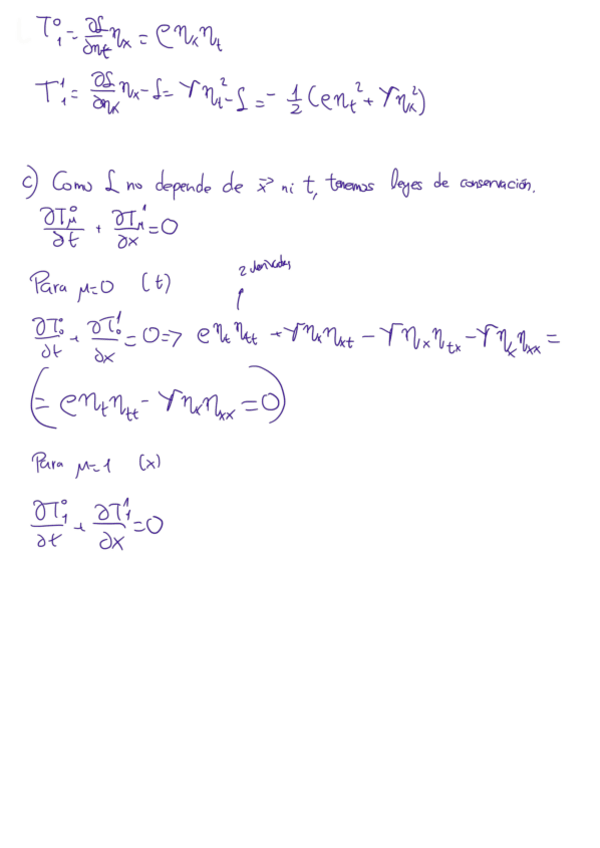 T⁰₁ = ∂L/∂ηt ηx = ρ ηx ηt
T¹₁ = ∂L/∂ηx ηx - L = Y ηt² - L = - 1/2 (ρ ηt² + Y ηx²)
c) Como L no depende de x⃗ ni t, tenemos leyes de conservación.
∂T⁰μ/∂t + ∂T¹μ/∂x = 0
2 derivadas
Para μ=0 (t)
∂T⁰₀/∂t + ∂T¹₀/∂x = 0 => ρ ηt ηtt + Y ηx ηxt - Y ηx ηtx - Y ηx ηxx =
(= ρ ηt ηtt - Y ηx ηxx = 0)
Para μ=1 (x)
∂T⁰₁/∂t + ∂T¹₁/∂x = 0